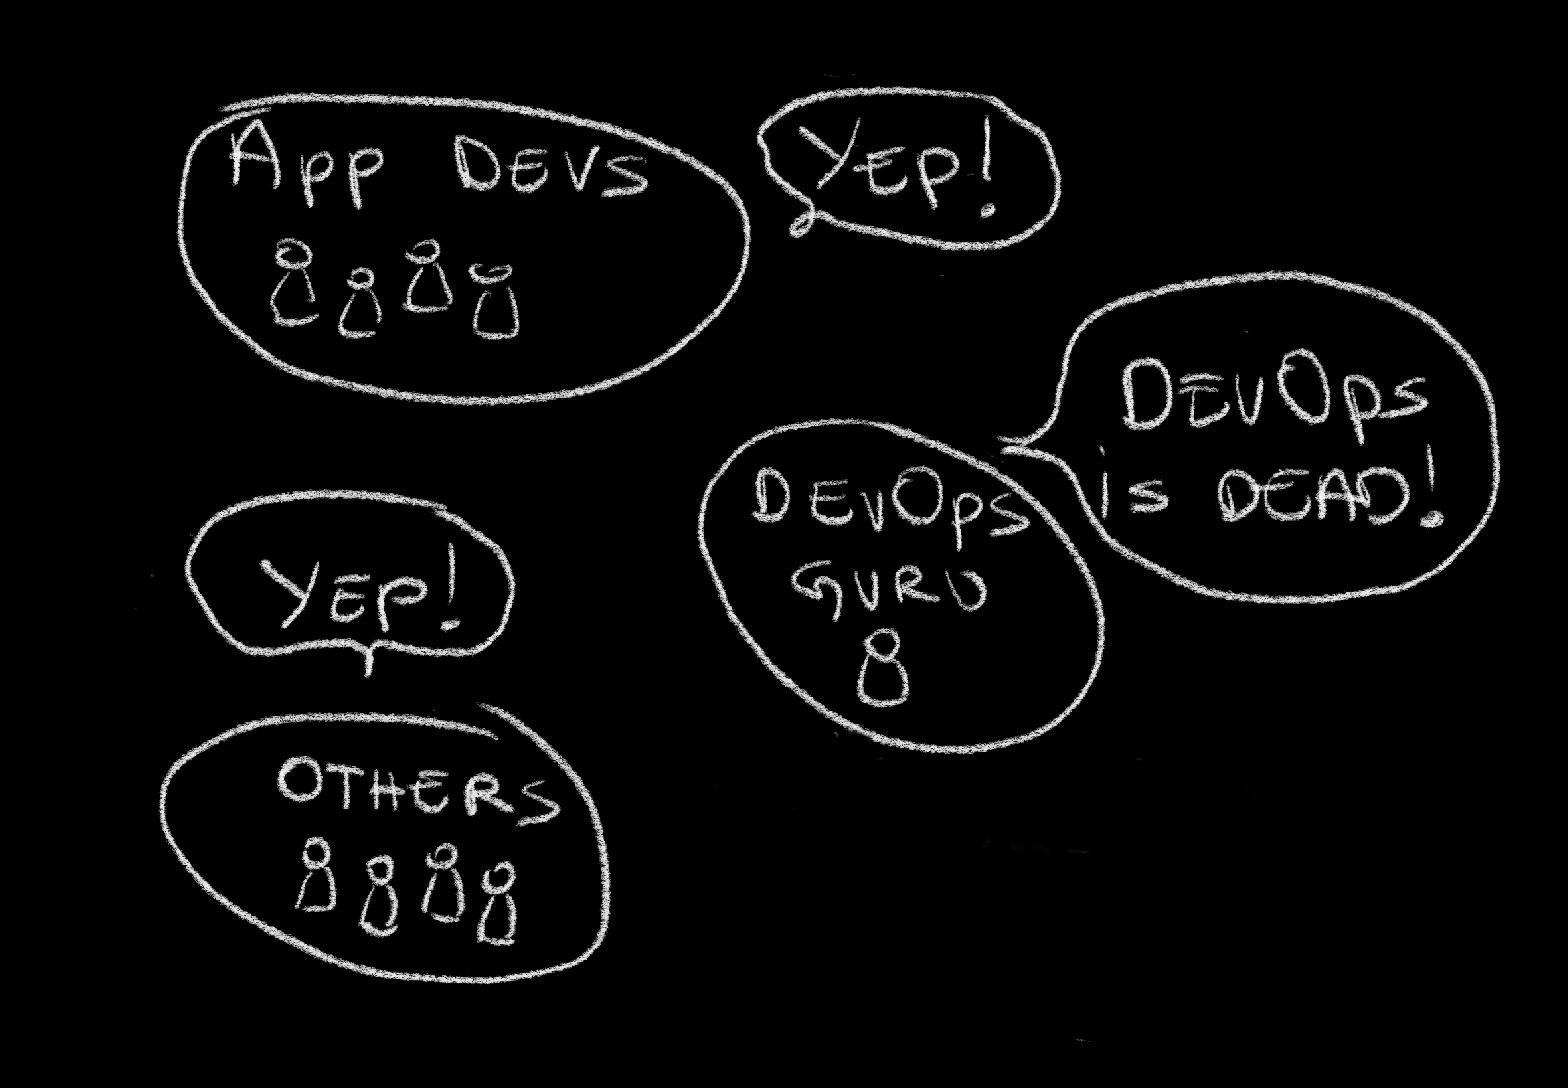 App DEVS
YEP!
DEVOps
is DEAD!
DEVOps
GURU
YEP!
OTHERS